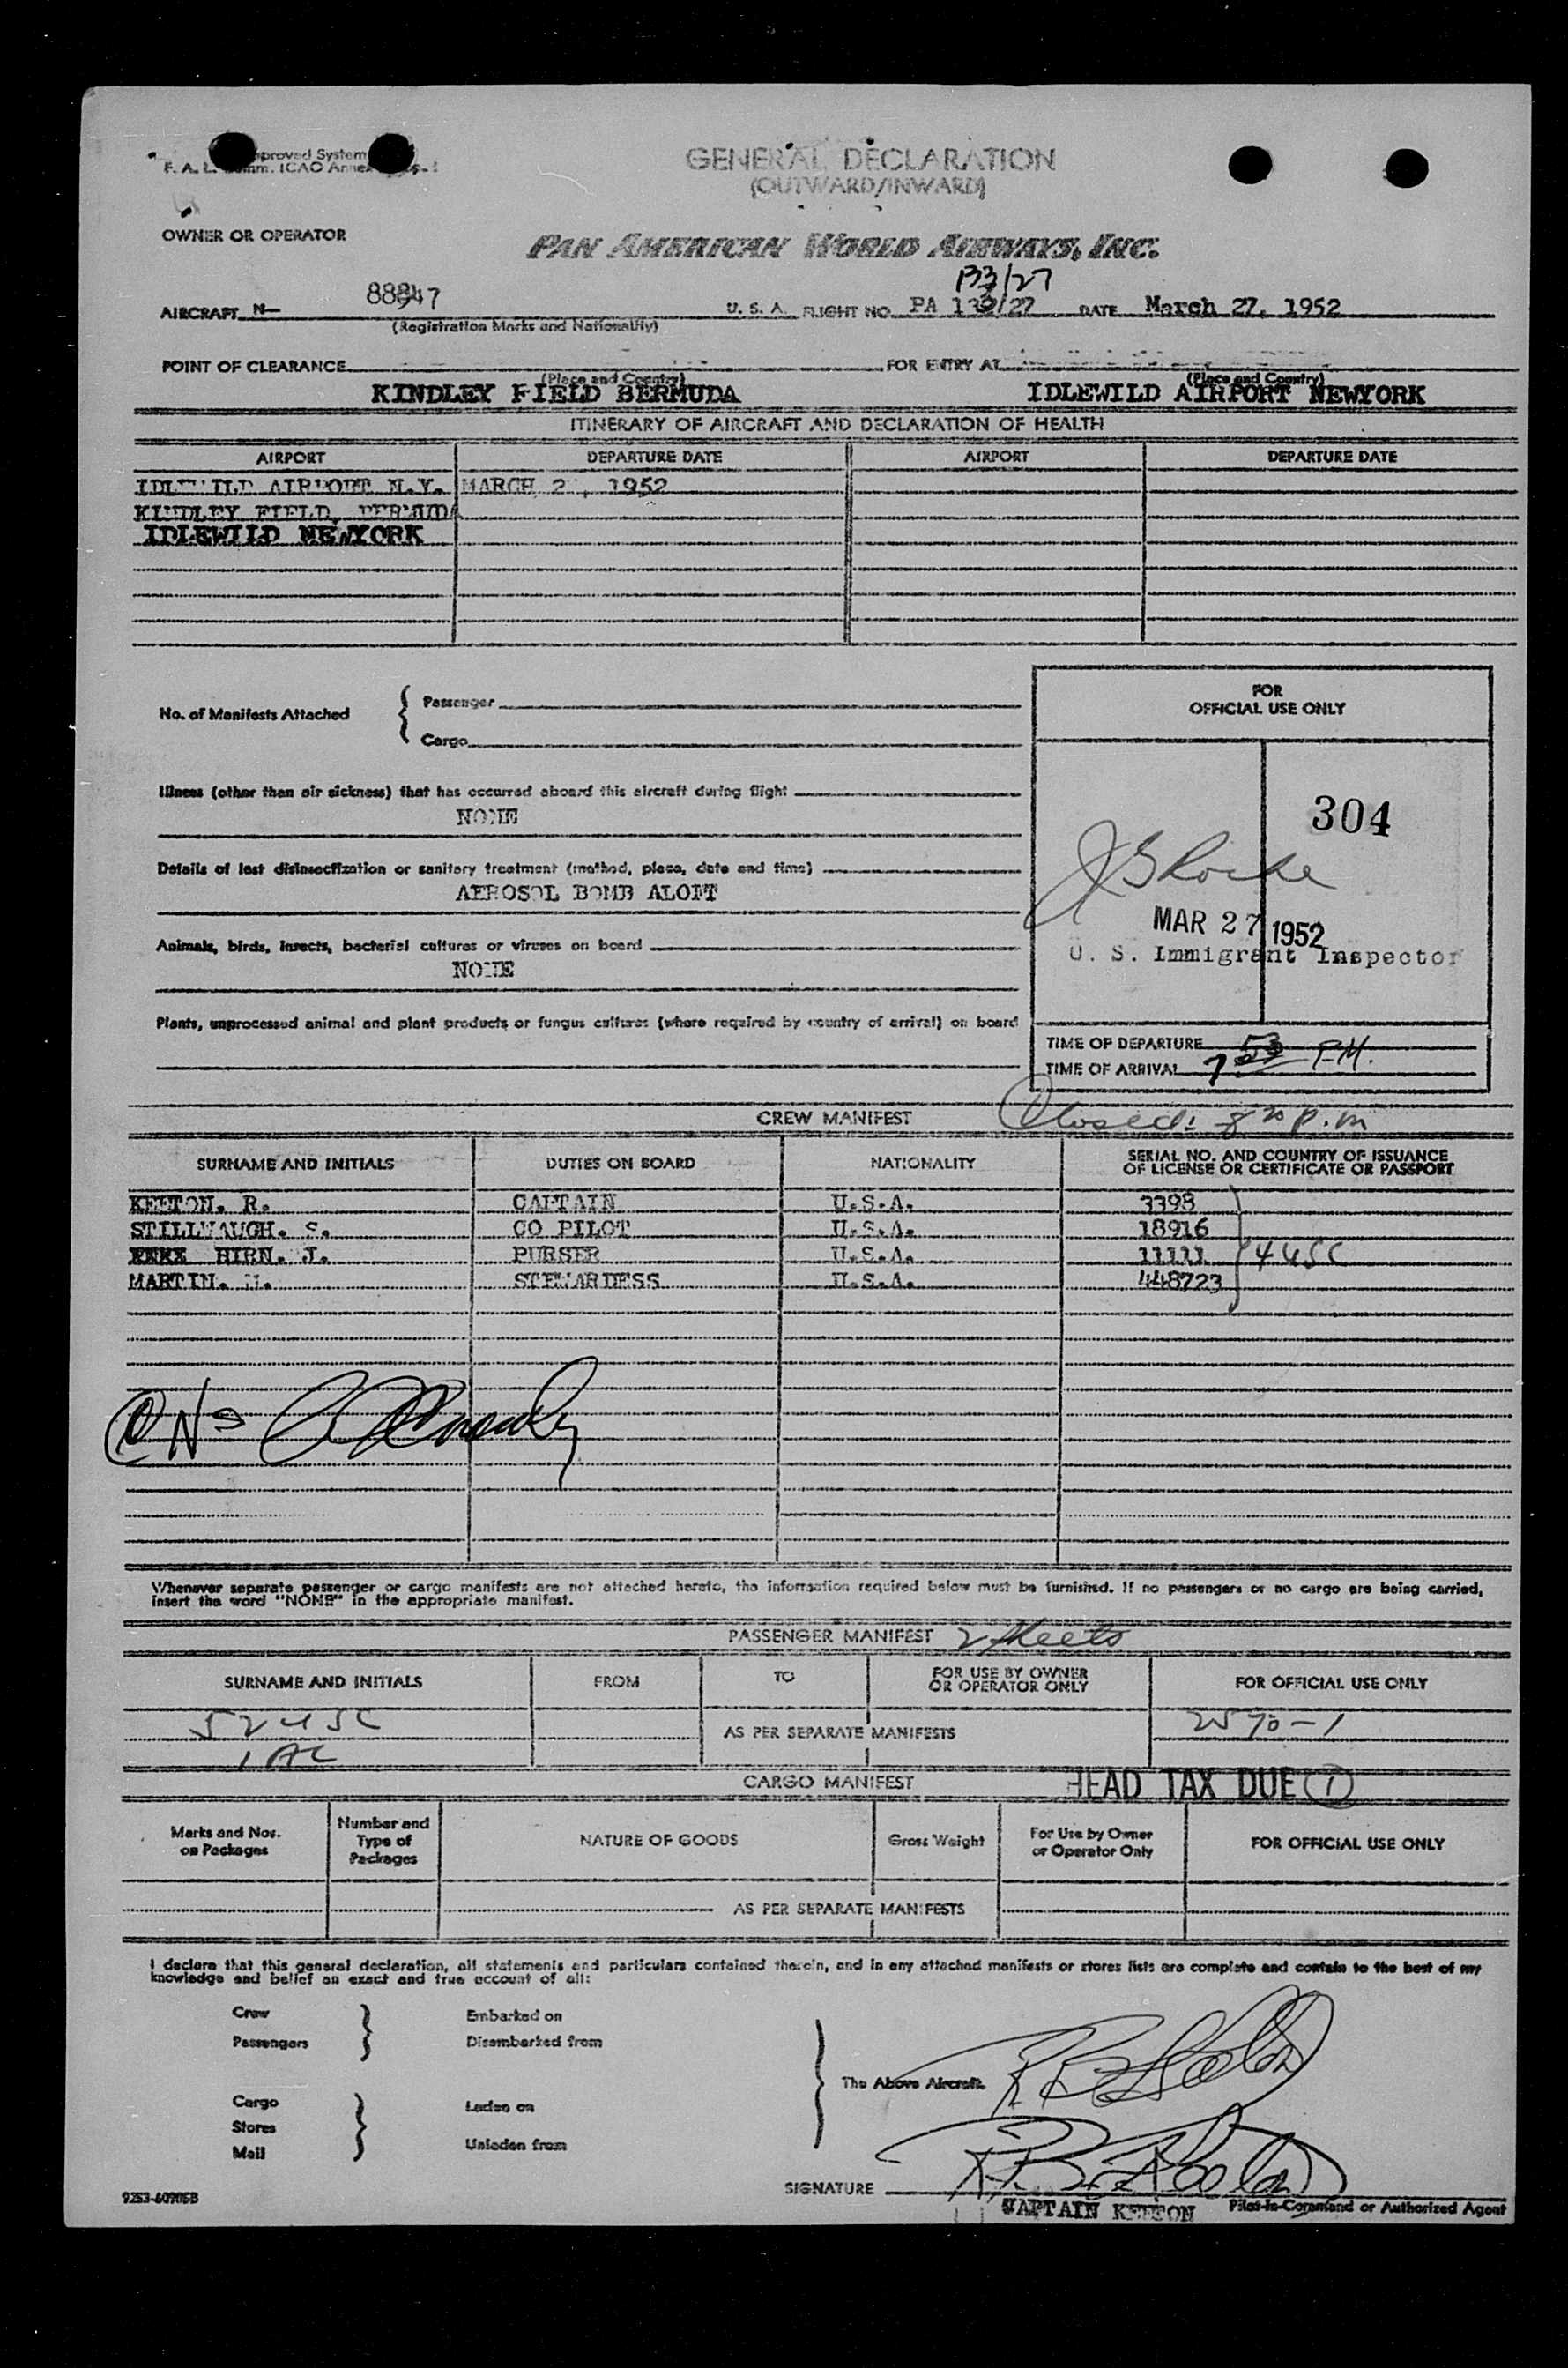 GENERAL DECLARATION
(OUTWARD/INWARD)
OWNER OR OPERATOR
PAN AMERICAN WORLD AIRWAYS, INC.
133/27
AIRCRAFT N- 7 U. S. A. FLIGHT NO. PA DATE March 27, 1952
(Registration Marks and Nationality)
POINT OF CLEARANCE FOR ENTRY AT
(Place and Country) (Place and Country)
KINDLEY FIELD BERMUDA IDLEWILD AIRPORT NEWYORK
ITINERARY OF AIRCRAFT AND DECLARATION OF HEALTH
AIRPORT DEPARTURE DATE AIRPORT DEPARTURE DATE
IDLEWILD AIRPORT N.Y. MARCH 2 , 1952
KINDLEY FIELD, BERMUDA
IDLEWILD NEWYORK
FOR
OFFICIAL USE ONLY
No. of Manifests Attached { Passenger
Cargo
Illness (other than air sickness) that has occurred aboard this aircraft during flight
NONE
304
Details of last disinsectization or sanitary treatment (method, place, date and time)
AEROSOL BOMB ALOFT
MAR 27 1952
Animals, birds, insects, bacterial cultures or viruses on board
U. S. Immigrant Inspector
NONE
Plants, unprocessed animal and plant products or fungus cultures (where required by country of arrival) on board
TIME OF DEPARTURE
TIME OF ARRIVAL 7 53 P.M.
CREW MANIFEST Closed: 8 20 p.m
SURNAME AND INITIALS DUTIES ON BOARD NATIONALITY SERIAL NO. AND COUNTRY OF ISSUANCE
OF LICENSE OR CERTIFICATE OR PASSPORT
KEETON. R. CAPTAIN U.S.A. 3398
STILLWAUGH. S. CO PILOT U.S.A. 18916
HIRN. J. PURSER U.S.A. 11111 4 USC
MARTIN. STEWARDESS U.S.A. 448723
Whenever separate passenger or cargo manifests are not attached hereto, the information required below must be furnished. If no passengers or no cargo are being carried,
insert the word "NONE" in the appropriate manifest.
PASSENGER MANIFEST 2 sheets
SURNAME AND INITIALS FROM TO FOR USE BY OWNER
OR OPERATOR ONLY FOR OFFICIAL USE ONLY
52 USC AS PER SEPARATE MANIFESTS
1 AC
CARGO MANIFEST HEAD TAX DUE 1
Marks and Nos.
on Packages Number and
Type of
Packages NATURE OF GOODS Gross Weight For Use by Owner
or Operator Only FOR OFFICIAL USE ONLY
AS PER SEPARATE MANIFESTS
I declare that this general declaration, all statements and particulars contained therein, and in any attached manifests or stores lists are complete and contain to the best of my
knowledge and belief an exact and true account of all:
Crew Embarked on
Passengers Disembarked from
The Above Aircraft.
Cargo Laden on
Stores
Mail Unladen from
SIGNATURE
9253-60905B
CAPTAIN KEETON Pilot-in-Command or Authorized Agent